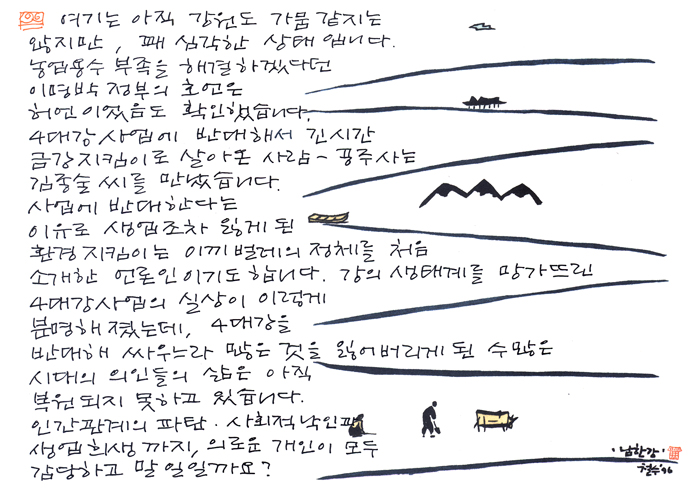 여기는 아직 강원도 가뭄 같지는
않지만, 꽤 심각한 상태입니다.
농업용수 부족을 해결하겠다던
이명박 정부의 호언은
허언이었음도 확인했습니다.
4대강사업에 반대해서 긴시간
금강지킴이로 살아온 사람~ 공주사는
김종술 씨를 만났습니다.
사업에 반대한다는
이유로 생업조차 잃게 된
환경지킴이는 이끼벌레의 정체를 처음
소개한 언론인이기도 합니다. 강의 생태계를 망가뜨린
4대강사업의 실상이 이렇게
분명해졌는데, 4대강을
반대해 싸우느라 많은 것을 잃어버리게 된 수많은
시대의 의인들의 삶은 아직
복원되지 못하고 있습니다.
인간관계의 파탄·사회적낙인과
생업희생까지, 의로운 개인이 모두
감당하고 말 일일까요?
·남한강·
철수'96